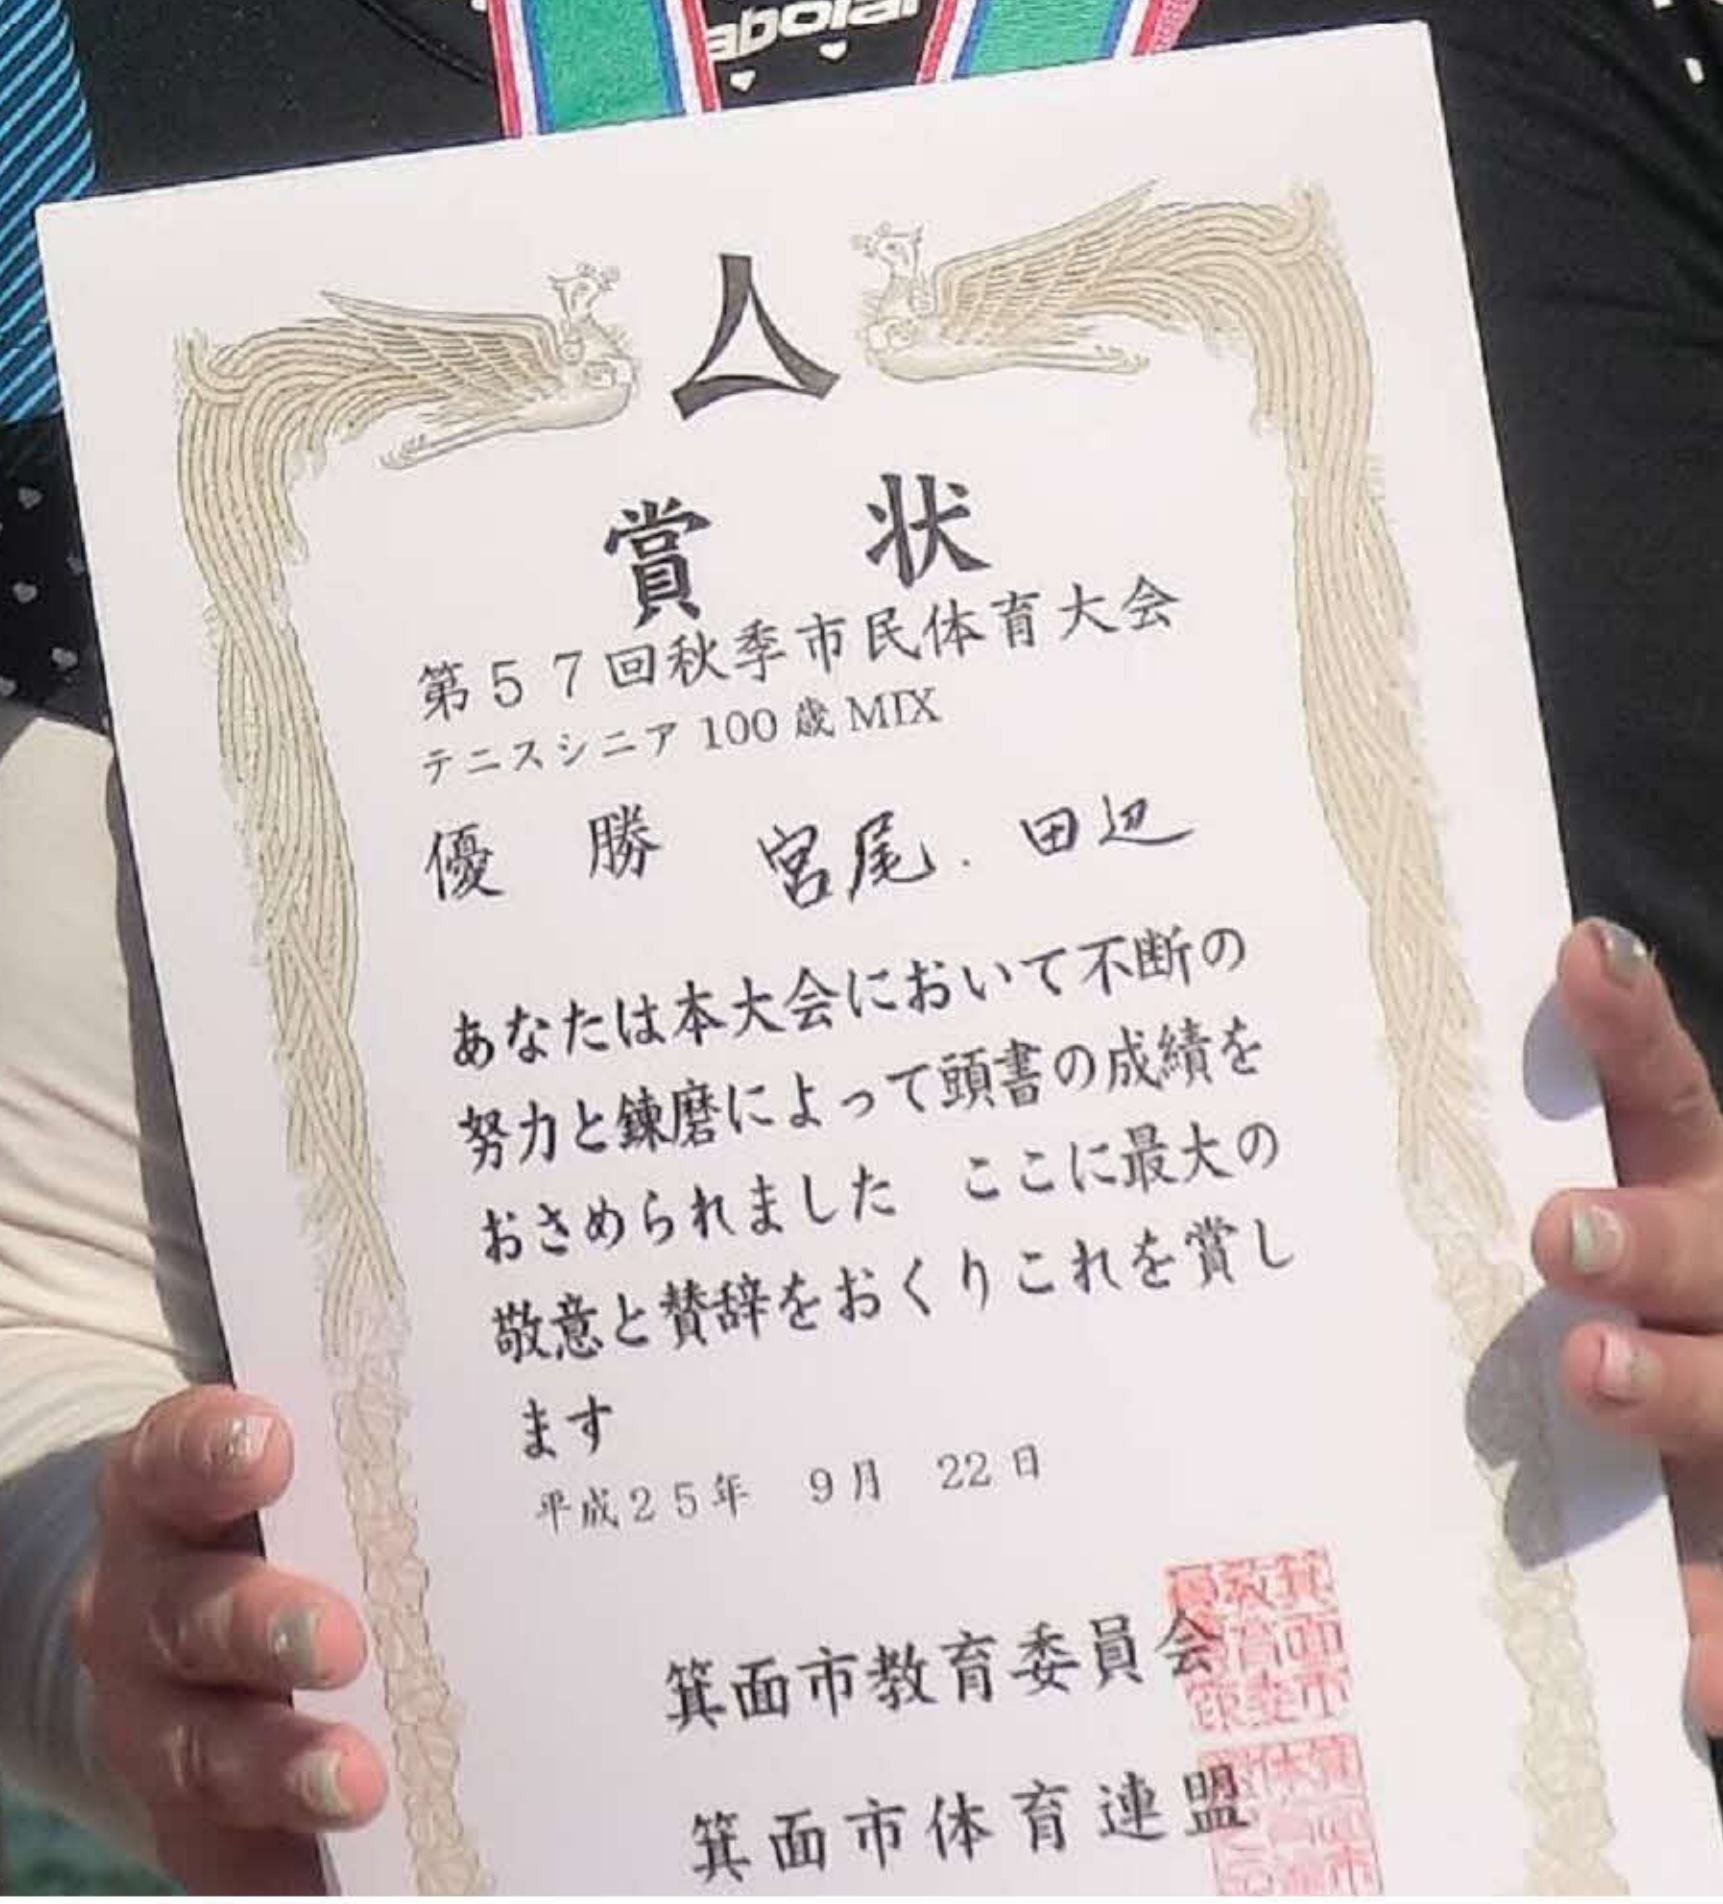 賞 状
第57回秋季市民体育大会
テニスシニア 100 歳 MIX
優 勝 宮尾．田辺
あなたは本大会において不断の
努力と錬磨によって頭書の成績を
おさめられました ここに最大の
敬意と賛辞をおくりこれを賞し
ます
平成25年 9月 22日
箕面市教育委員会
箕面市体育連盟